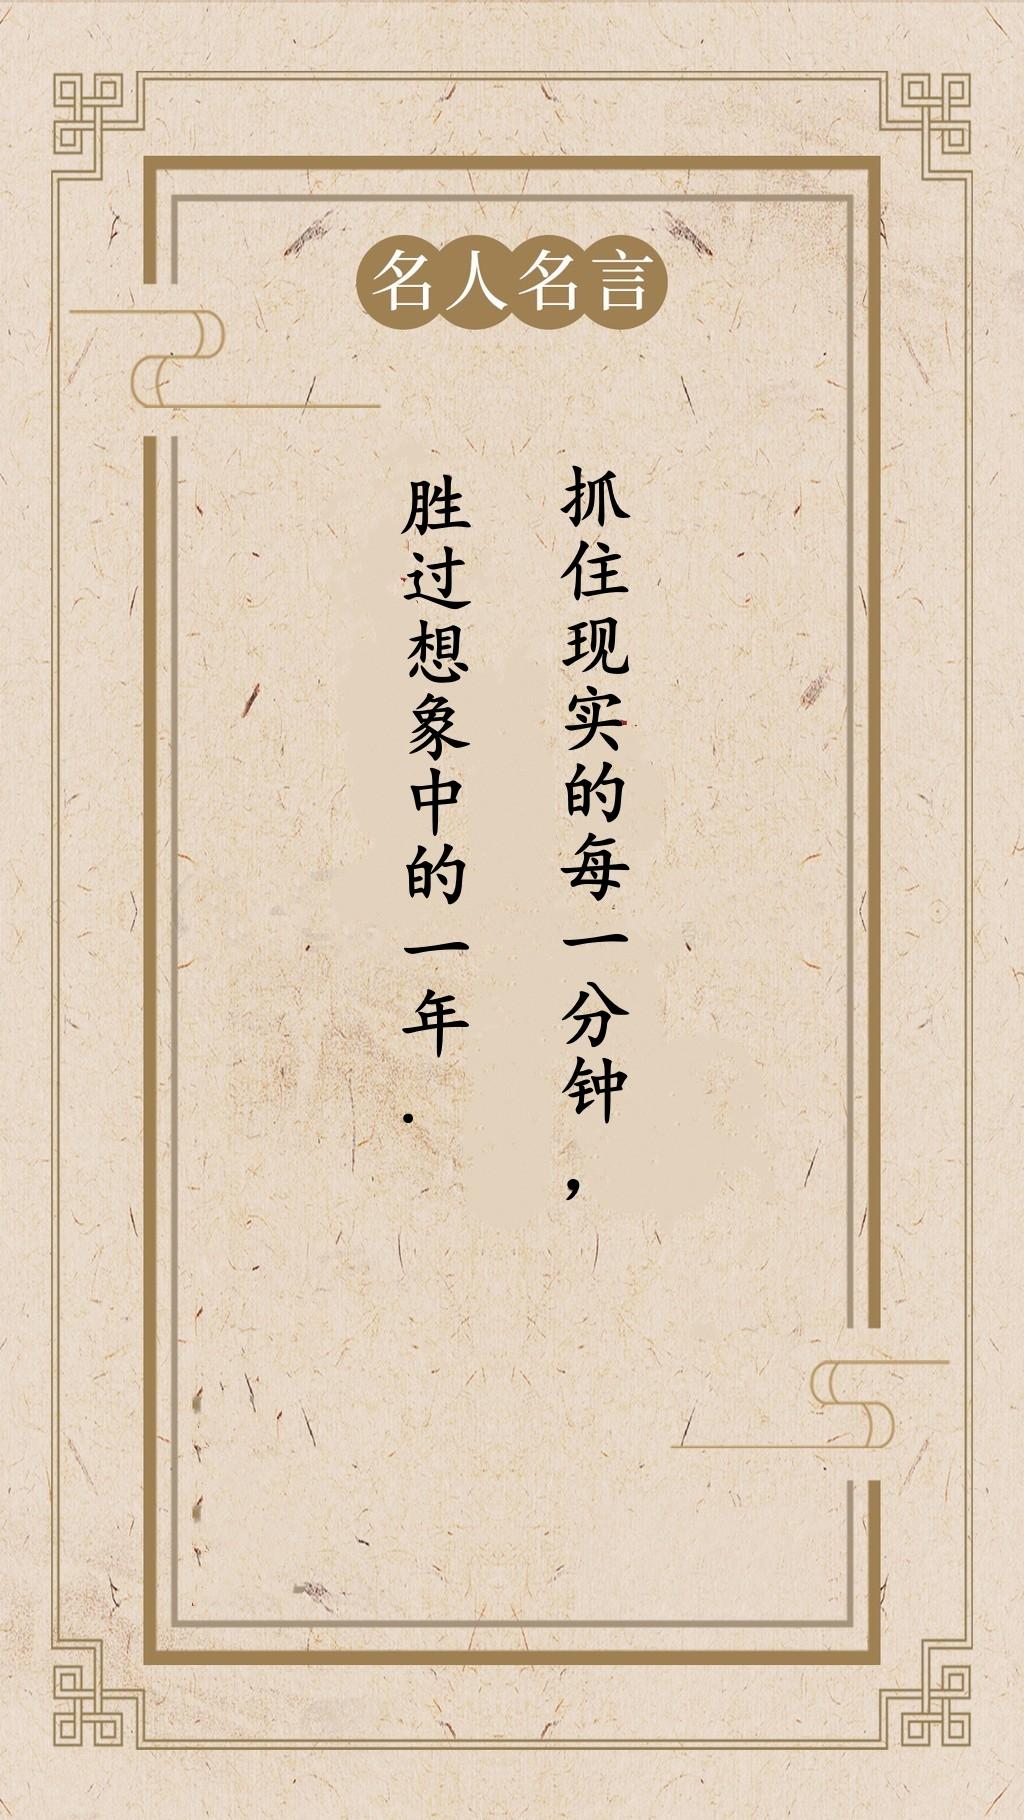 名人名言
抓住现实的每一分钟，
胜过想象中的一年.